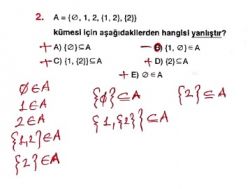 2. A = {∅, 1, 2, {1, 2}, {2}}
kümesi için aşağıdakilerden hangisi yanlıştır?
+ A) {∅}⊆A
− B) {1, ∅}∈A
+ C) {1, {2}}⊆A
+ D) {2}⊆A
+ E) ∅∈A
∅∈A
1∈A
2∈A
{1,2}∈A
{2}∈A
{∅}⊆A
{1,{2}}⊆A
{2}⊆A